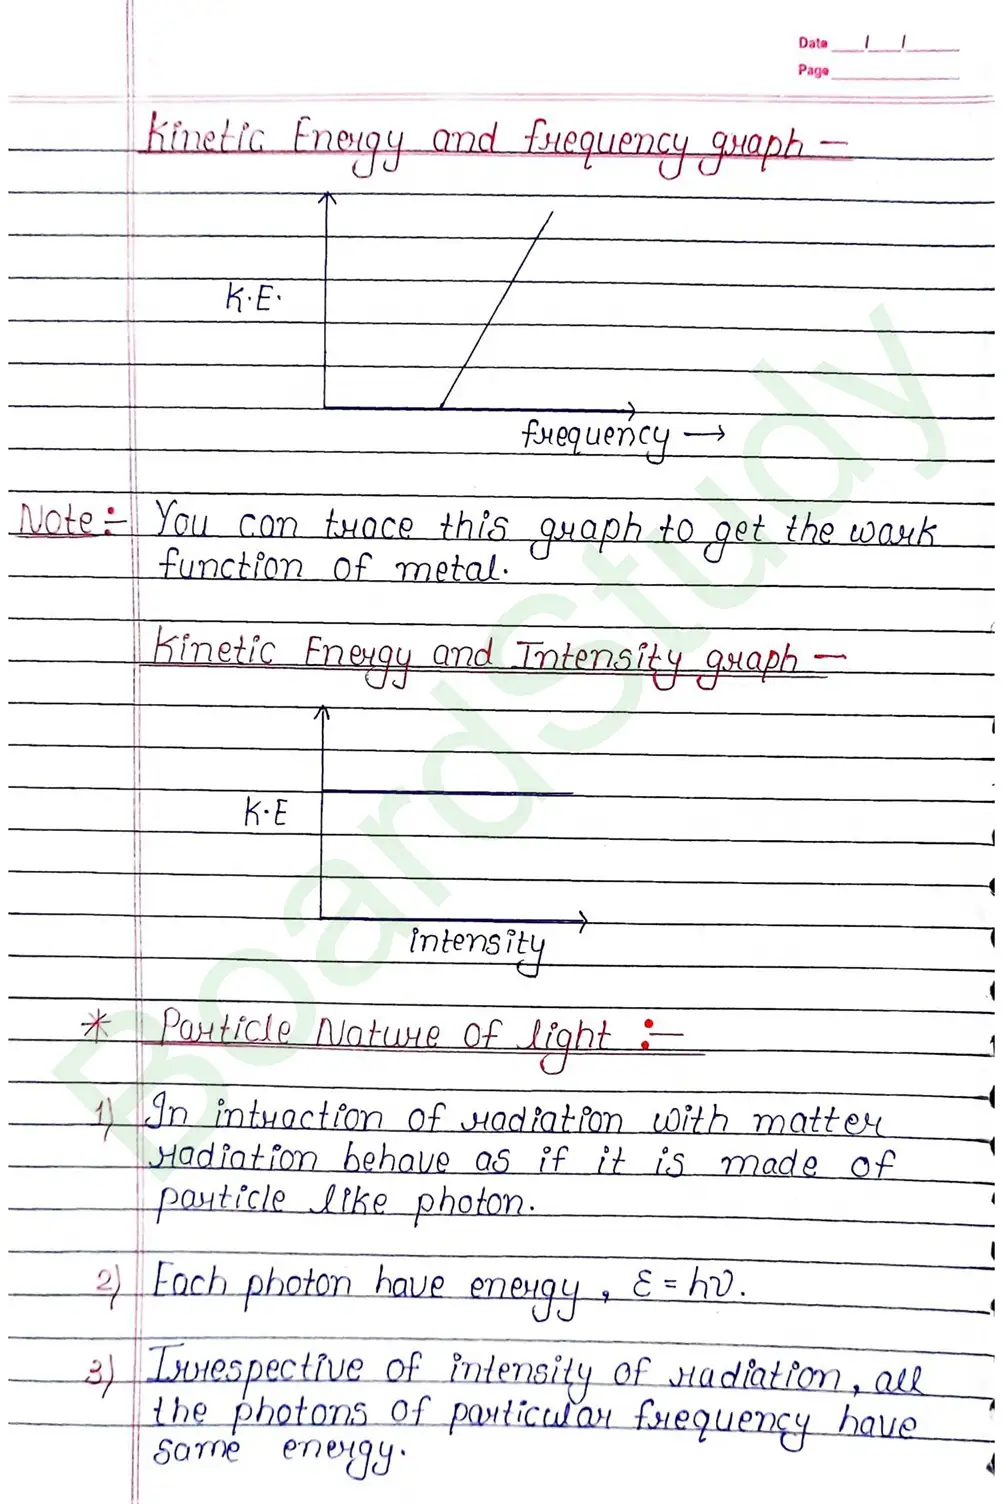 Date / /
Page
Kinetic Energy and frequency graph –
K.E.
frequency →
Note:- You can trace this graph to get the work
function of metal.
Kinetic Energy and Intensity graph –
K.E
intensity
* Particle Nature of light :-
1) In intraction of radiation with matter
radiation behave as if it is made of
particle like photon.
2) Each photon have energy, ε = hν.
3) Irrespective of intensity of radiation, all
the photons of particular frequency have
same energy.
BoardStudy